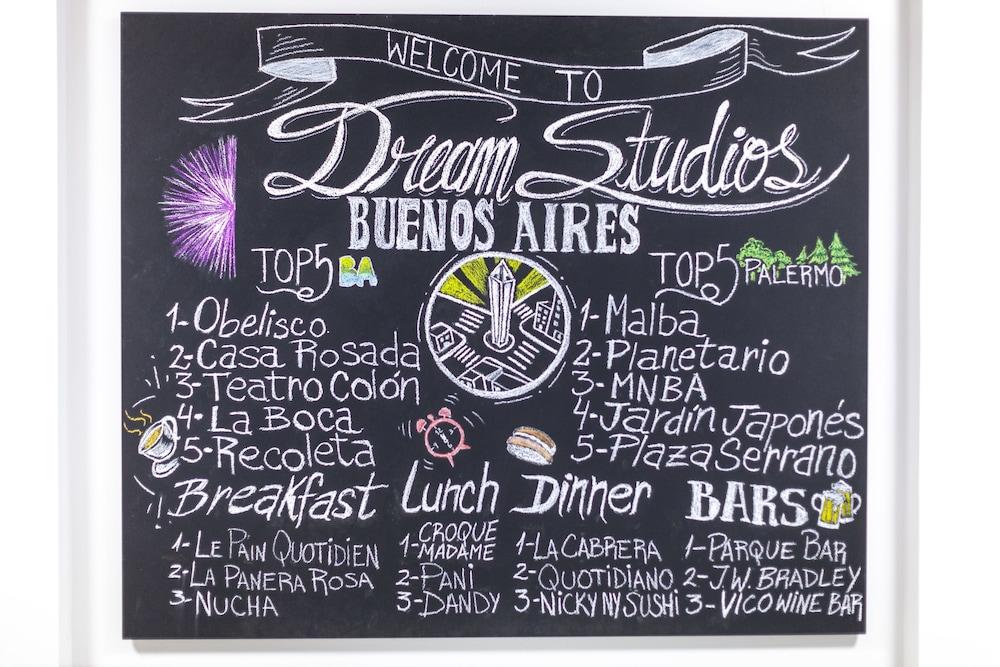 WELCOME TO
Dream Studios
BUENOS AIRES
TOP5 BA
1-Obelisco
2-Casa Rosada
3-Teatro Colón
4-La Boca
5-Recoleta
TOP5 PALERMO
1-Malba
2-Planetario
3-MNBA
4-Jardín Japonés
5-Plaza Serrano
Breakfast
1-LE PAIN QUOTIDIEN
2-LA PANERA ROSA
3-NUCHA
Lunch
1-CROQUE
MADAME
2-PANI
3-DANDY
Dinner
1-LA CABRERA
2-QUOTIDIANO
3-NICKY NY SUSHI
BARS
1-PARQUE BAR
2-J.W. BRADLEY
3-VICO WINE BAR